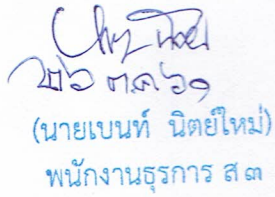 ๒๖ ต.ค. ๖๑
(นายเบนท์ นิตย์ใหม่)
พนักงานธุรการ ส ๓